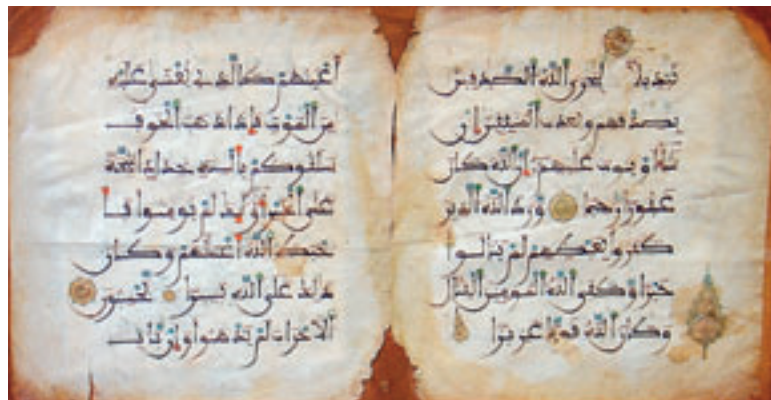 تبديلا ليجزي الله الصدقين
بصدقهم ويعذب المنفقين إن
شاء أو يتوب عليهم إن الله كان
غفورا رحيما ورد الله الذين
كفروا بغيظهم لم ينالوا
خيرا وكفى الله المومنين القتال
وكان الله قويا عزيزا
أعينهم كالذي يغشى عليه
من الموت فإذا ذهب الخوف
سلقوكم بألسنة حداد أشحة
على الخير أولئك لم يومنوا فأ
حبط الله أعملهم وكان
ذلك على الله يسيرا يحسبون
الأحزاب لم يذهبوا وإن يأت